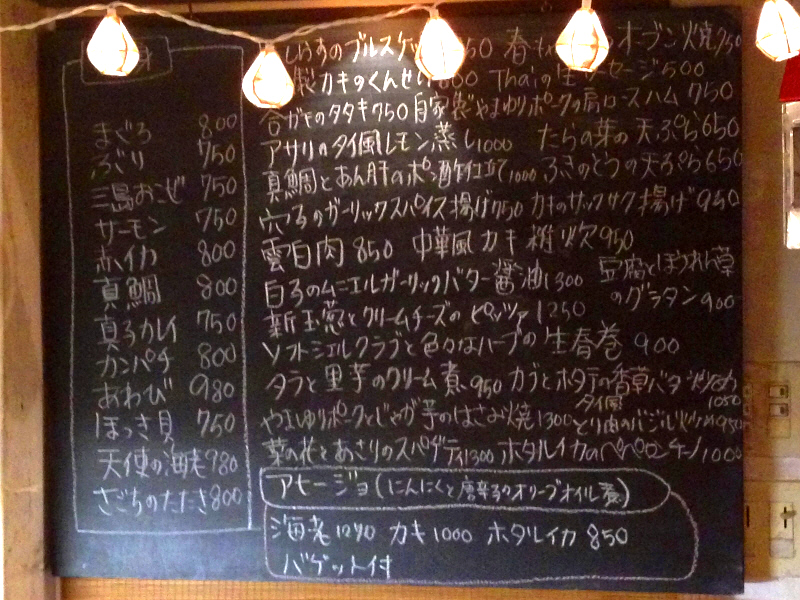 まぐろ 800
ぶり 750
三島おこぜ 750
サーモン 750
赤イカ 800
真鯛 800
真子カレイ 750
カンパチ 800
あわび 980
ほっき貝 750
天使の海老 980
さごちのたたき 800
しらすのブルスケッ 50 春 オーブン焼 750
製 カキのくんせい 800 Thaiの生 ソーセージ 500
合ガキのタタキ 750 自家製やまゆりポークの肩ロースハム 750
アサリのタイ風レモン蒸し 1000 たらの葉の天ぷら 650
真鯛とあん肝のポン酢仕立て 1000 ふきのとうの天ぷら 650
穴子のガーリックスパイス揚げ 750 カキのサックサク揚げ 940
雲白肉 850 中華風カキ雑炊 950
白子のムニエルガーリックバター醤油 1300 豆腐とほうれん草のグラタン 900
新玉葱とクリームチーズのピッツァ 1250
ソフトシェルクラブと色々なハーブの生春巻 900
タラと里芋のクリーム煮 950 カブとホタテの香草バター炒め 1050
やまゆりポークとじゃが芋のはさみ焼 1300 タイ風とり肉のバジル炒め 950
菜の花とあさりのスパゲティ 1300 ホタルイカのペペロンチーノ 1000
アヒージョ(にんにくと唐辛子のオリーブオイル煮)
海老 1290 カキ 1000 ホタルイカ 850
バゲット付